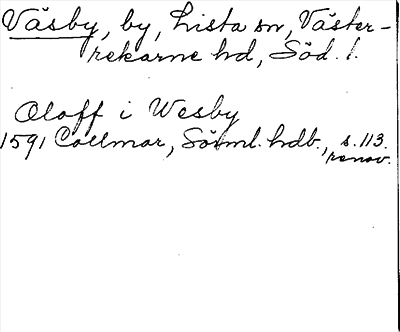 Väsby, by, Lista sn, Väster-
rekarne hd, Söd. l.
Oloff i Wesby
1591 Collmar, Sörml. hdb., s. 113.
renov.